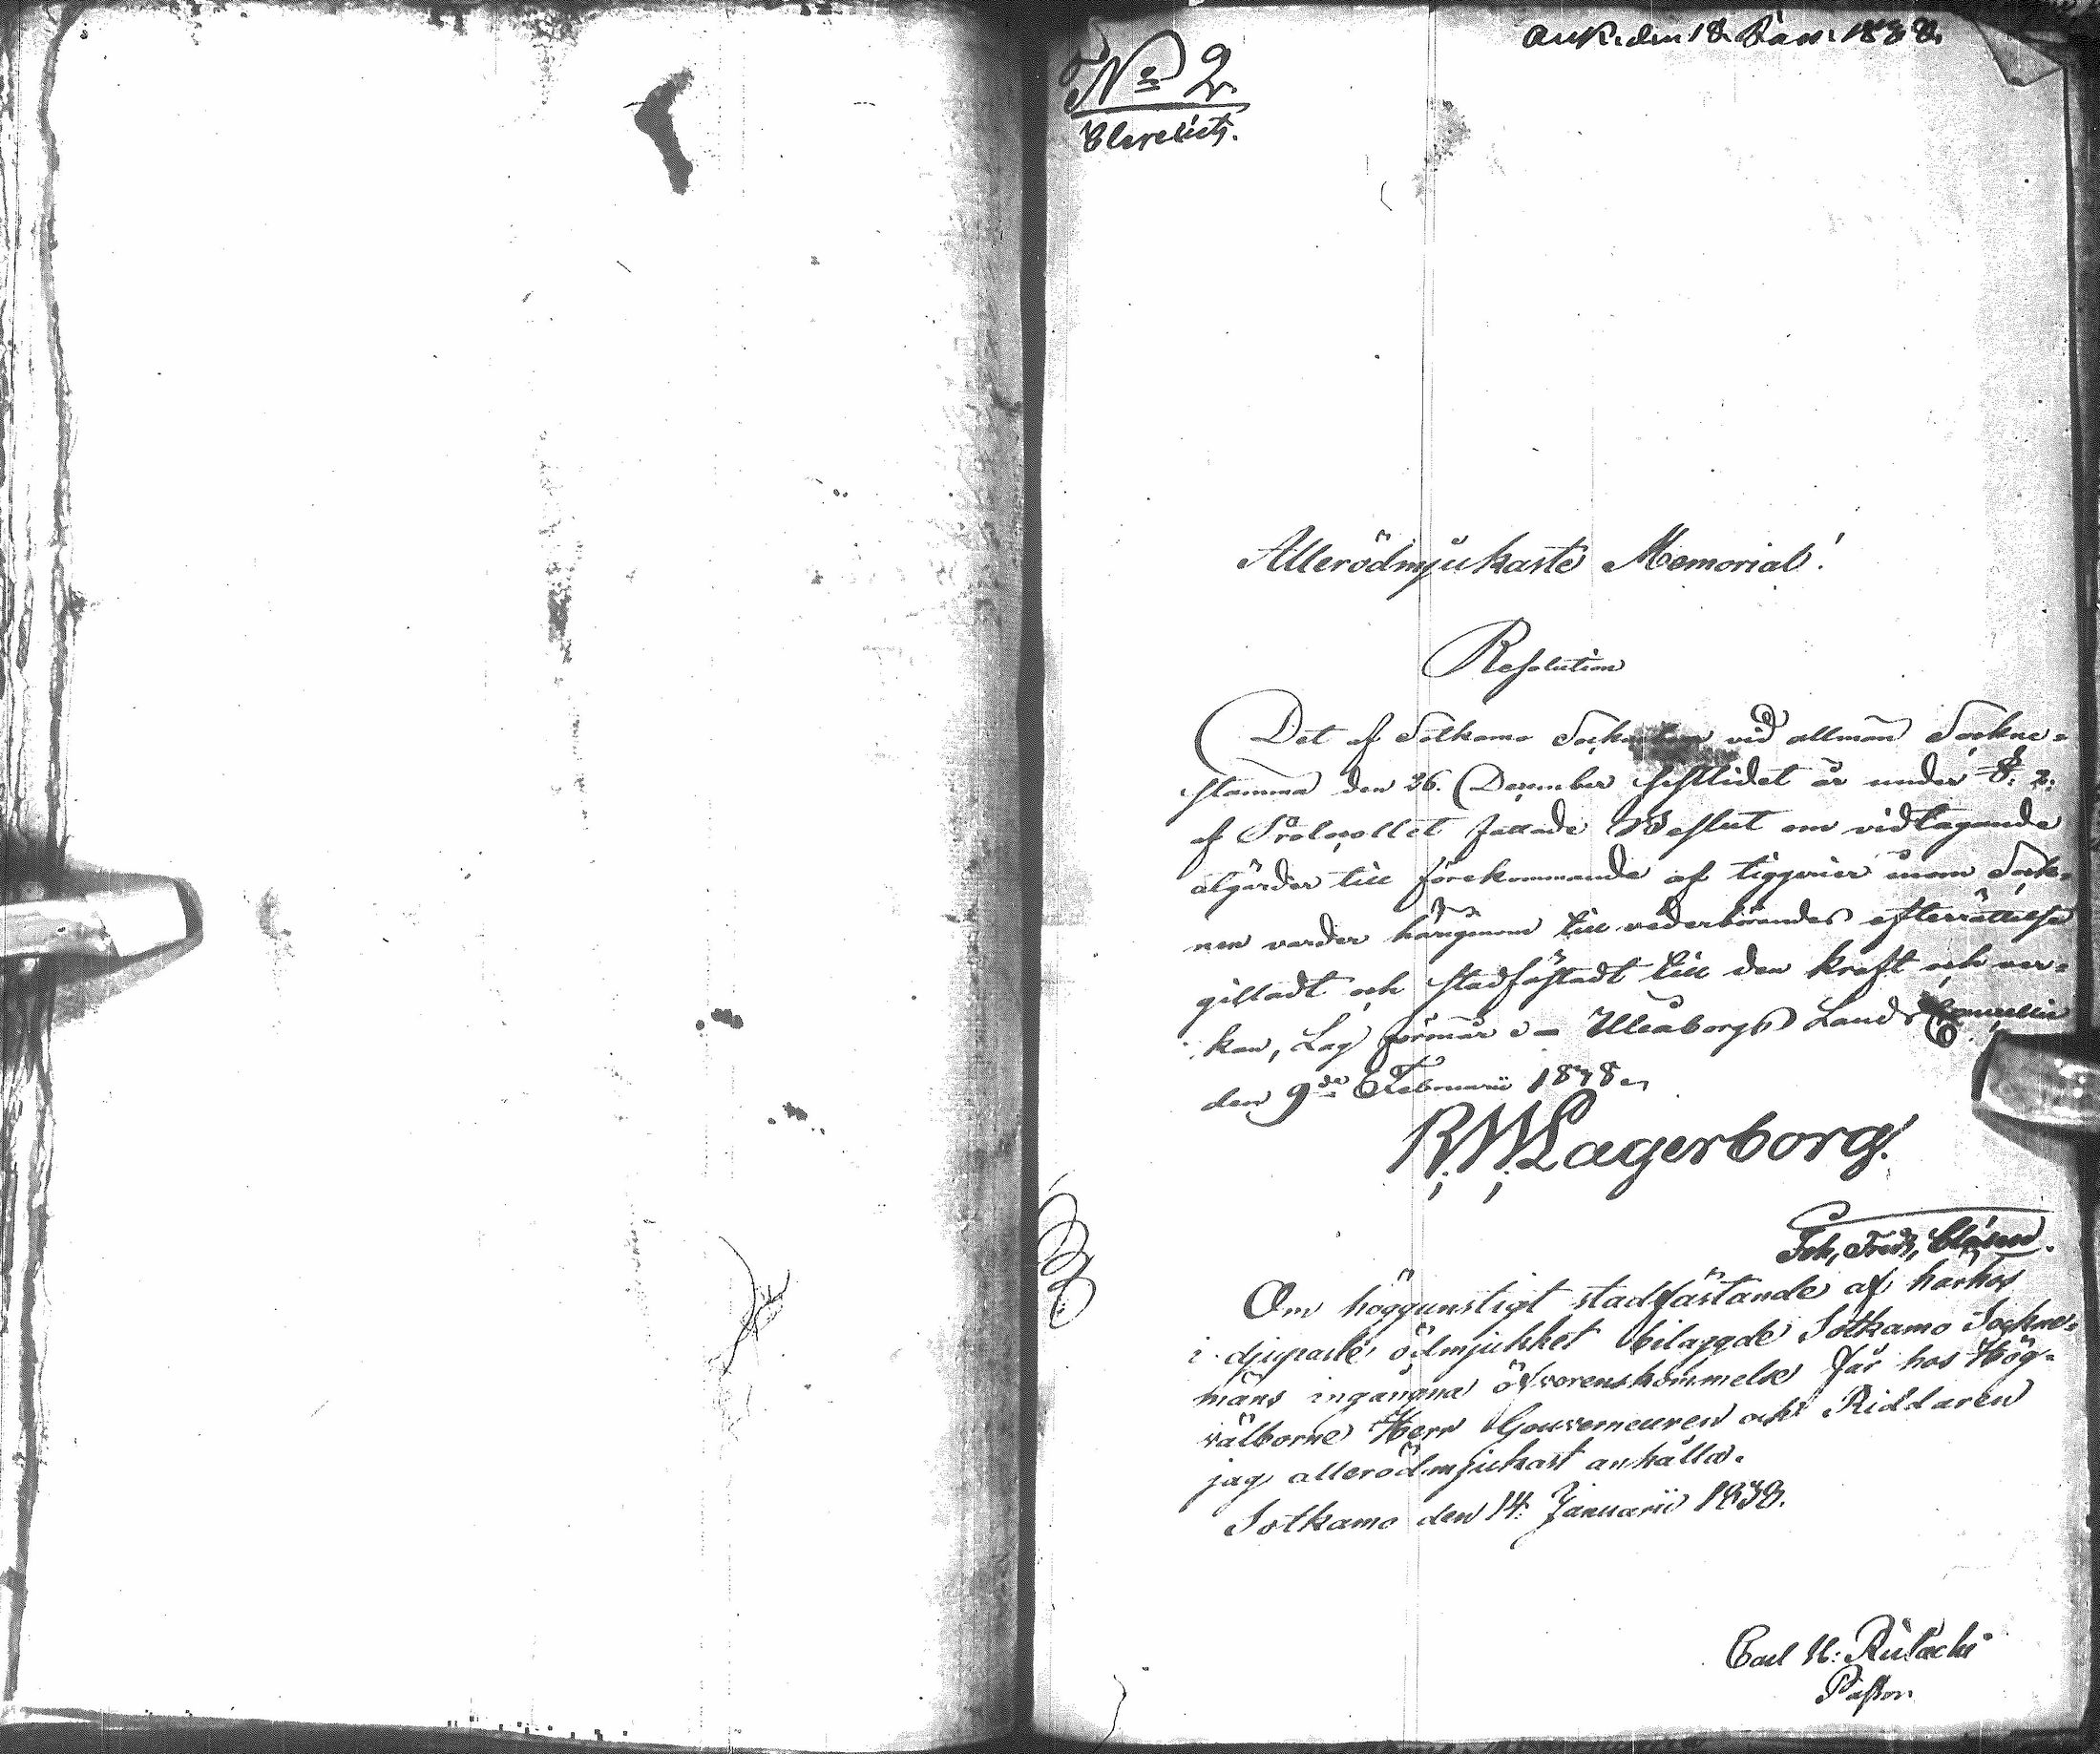 Ank. den 18 Jan: 1838.
No 2.
Allerödmjukaste Memorial!
Resolution
Det af Sotkamo vid allmän Sockne-
stämma den 26. December sistlidet år under §: 2.
af Protocollet fattade Beslut om vidtagande
åtgärder till förekommande af tiggerier inom Sock-
nen varder härigenom till vederbörandes efterrättelse
gilladt och stadfästadt till den kraft och ver-
kan, Lag förmår. Uleåborgs Lands Cancellie
den 9de Februarii 1838.
R. W. Lagerborg.
Joh. Fred. Clásen.
Om höggunstigt stadfästande af härhos
i djupaste ödmjukhet bilaggde Sotkamo Sockne-
mäns ingångna öfverenskommelse får hos Hög-
välborne Herr Gouverneuren och Riddaren
jag allerödmjukast anhålla.
Sotkamo den 14. Januarii 1838.
Carl H:
Pastor